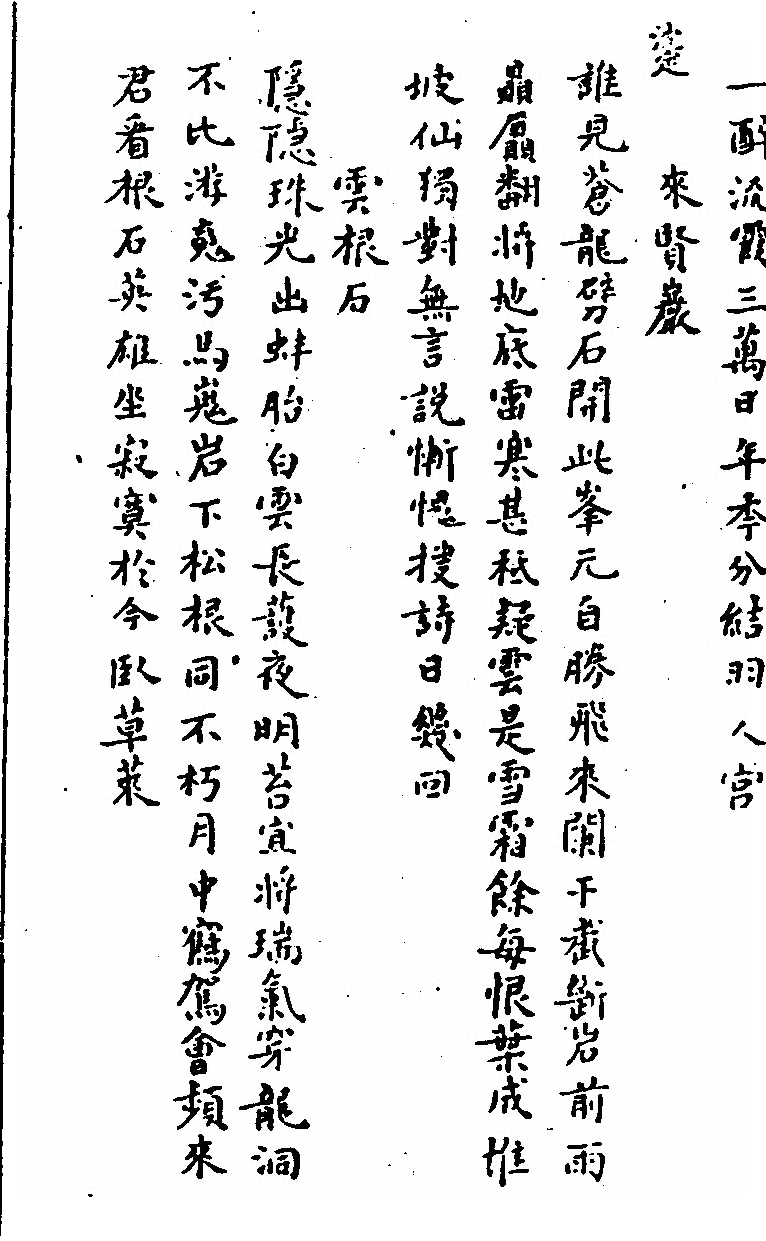 一醉流霞三萬日年季分結羽人宫
來賢巖
誰見蒼龍劈石開此峯元自勝飛來闌干截斷岩前雨
贔屭翻將地底雷寒甚秪疑雲是雪霜餘每恨葉成堆
坡仙獨對無言說慚愧搜詩日幾回
雲根石
隱隱珠光出蚌胎白雲長護夜明苔宜將瑞氣穿龍洞
不比游氛污馬嵬岩下松根同不朽月中鶴駕會頻來
君看根石英雄坐寂寞於今臥草萊